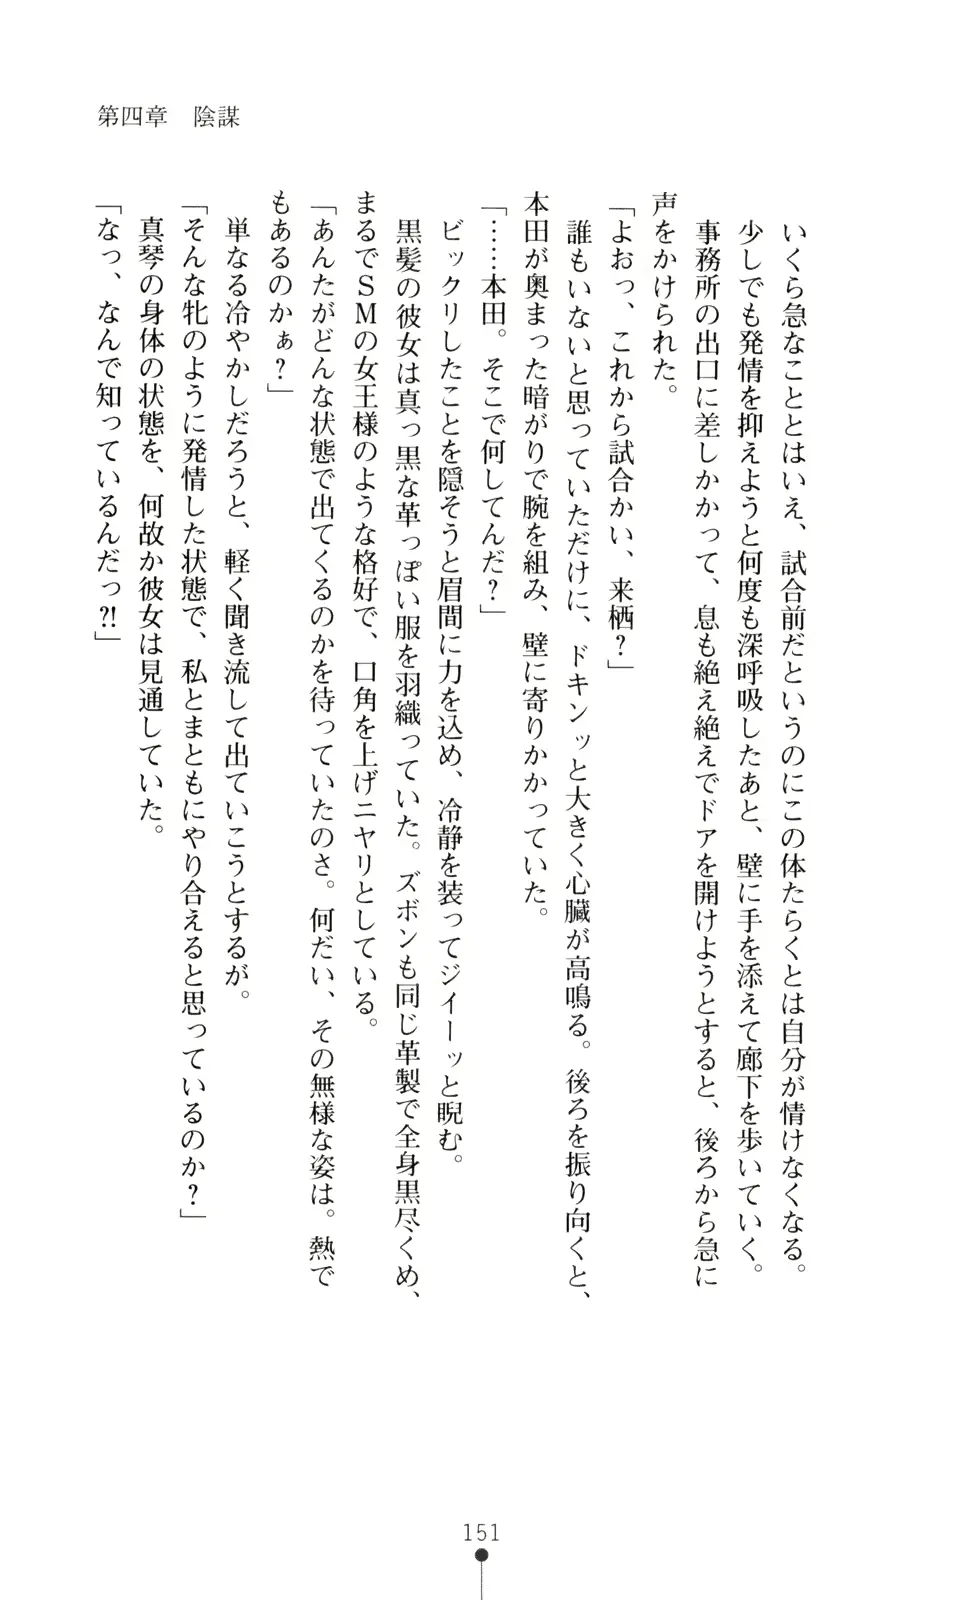 第四章　陰謀
いくら急なこととはいえ、試合前だというのにこの体たらくとは自分が情けなくなる。
少しでも発情を抑えようと何度も深呼吸したあと、壁に手を添えて廊下を歩いていく。
事務所の出口に差しかかって、息も絶え絶えでドアを開けようとすると、後ろから急に
声をかけられた。
「よおっ、これから試合かい、来栖？」
誰もいないと思っていただけに、ドキンッと大きく心臓が高鳴る。後ろを振り向くと、
本田が奥まった暗がりで腕を組み、壁に寄りかかっていた。
「……本田。そこで何してんだ？」
ビックリしたことを隠そうと眉間に力を込め、冷静を装ってジイーッと睨む。
黒髪の彼女は真っ黒な革っぽい服を羽織っていた。ズボンも同じ革製で全身黒尽くめ、
まるでＳＭの女王様のような格好で、口角を上げニヤリとしている。
「あんたがどんな状態で出てくるのかを待っていたのさ。何だい、その無様な姿は。熱で
もあるのかぁ？」
単なる冷やかしだろうと、軽く聞き流して出ていこうとするが。
「そんな牝のように発情した状態で、私とまともにやり合えると思っているのか？」
真琴の身体の状態を、何故か彼女は見通していた。
「なっ、なんで知っているんだっ?!」
151